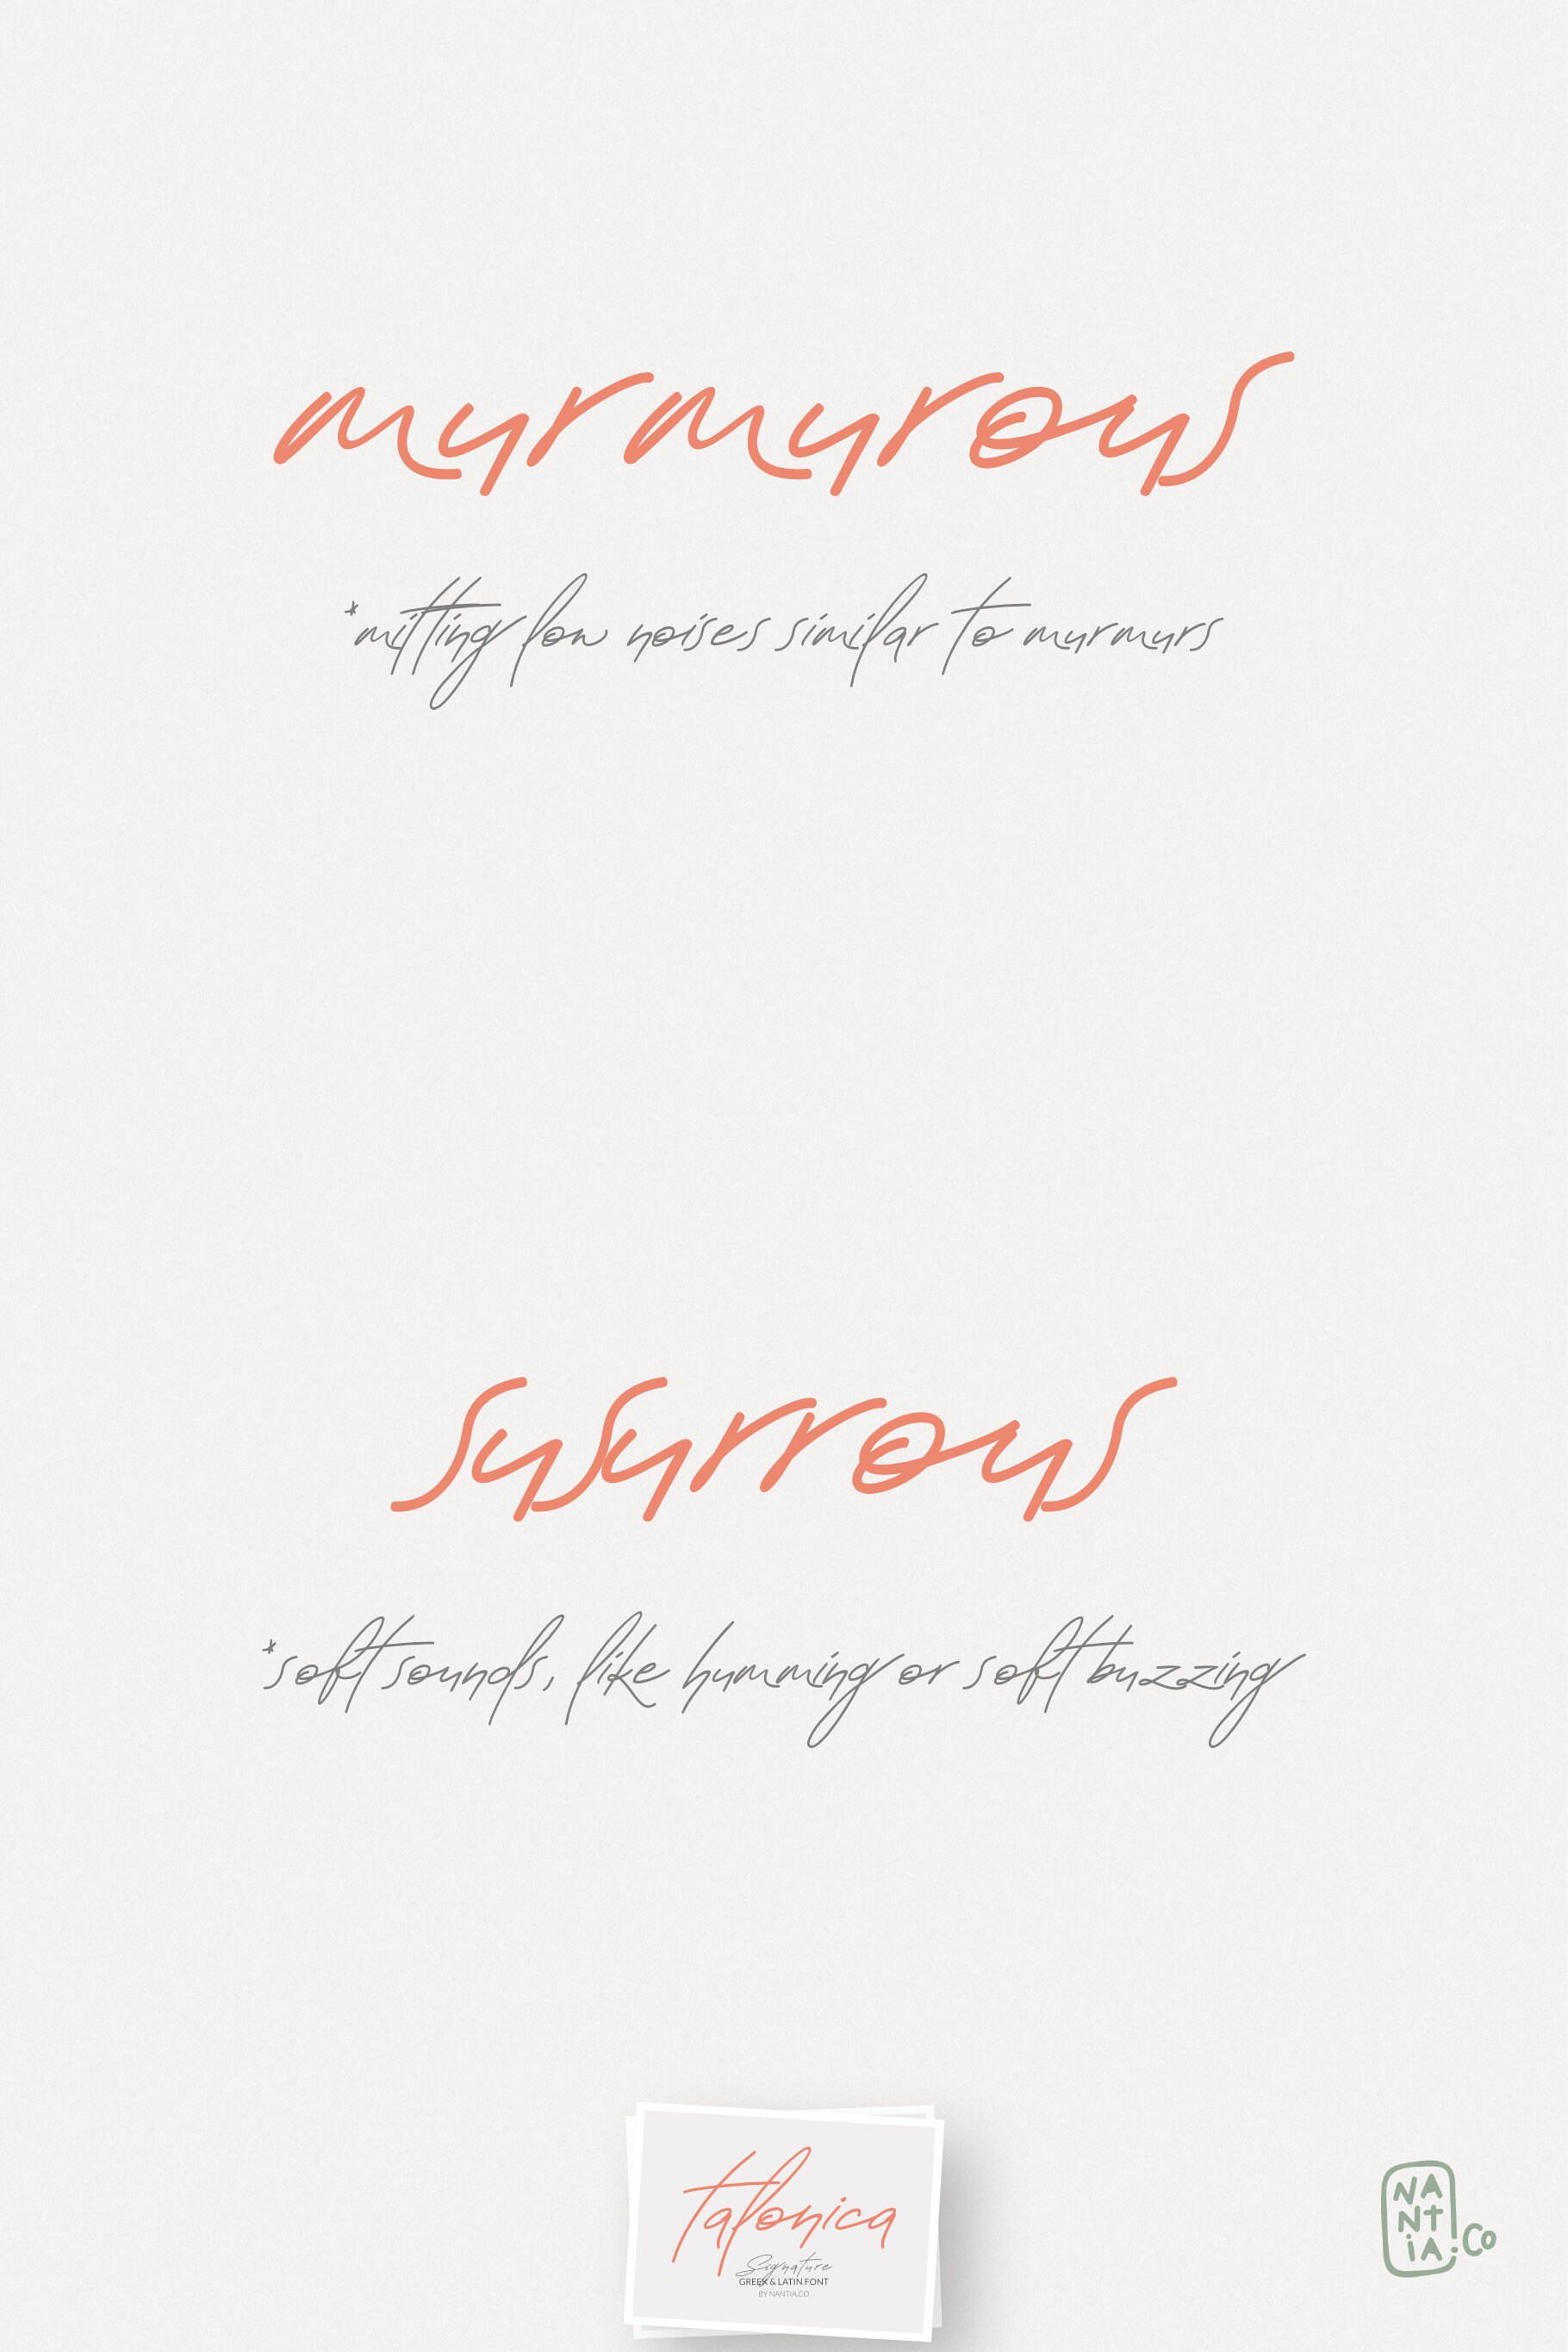 murmurous
*mitting low noises similar to murmurs
susurrous
*soft sounds, like humming or soft buzzing
talonica
Signature
GREEK & LATIN FONT
BY NANTIA.CO
NA
Nt
iA.Co